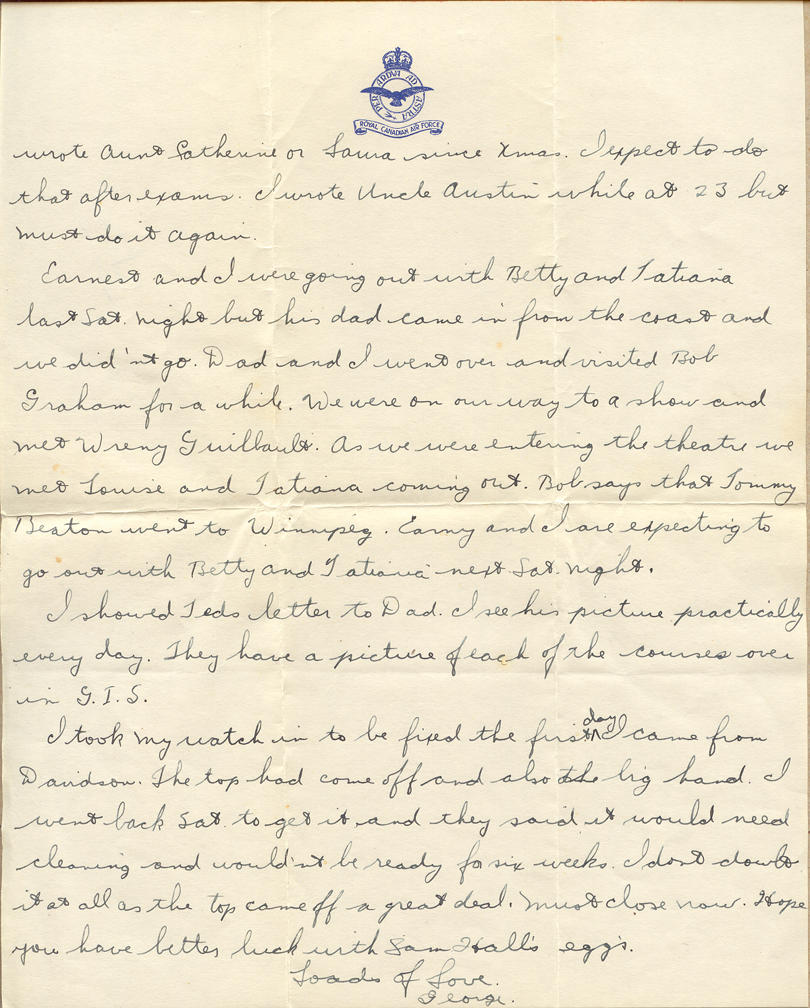 PER ARDVA AD ASTRA
ROYAL CANADIAN AIR FORCE
wrote Aunt Catherine or Laura since Xmas. I expect to do
that after exams. I wrote Uncle Austin while at 23 but
must do it again.
Earnest and I were going out with Betty and Tatiana
last Sat. night but his dad came in from the coast and
we did'nt go. Dad and I went over and visited Bob
Graham for a while. We were on our way to a show and
met Wreny Guilbault. As we were entering the theatre we
met Louise and Tatiana coming out. Bob says that Tommy
Beaton went to Winnipeg. Earny and I are expecting to
go out with Betty and Tatiana next Sat. night.
I showed Teds letter to Dad. I see his picture practically
every day. They have a picture of each of the courses over
in G.I.S.
I took my watch in to be fixed the first day I came from
Davidson. The top had come off and also the big hand. I
went back Sat. to get it and they said it would need
cleaning and would'nt be ready for six weeks. I dont doubt
it at all as the top came off a great deal. Must close now. Hope
you have better luck with Sam Hall's eggs.
Loads of Love.
George.